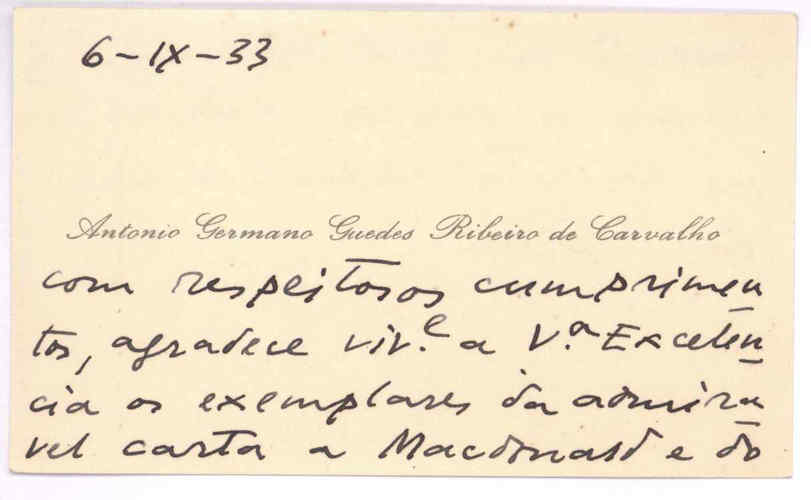 6-IX-33
Antonio Germano Guedes Ribeiro de Carvalho
com respeitosos cumprimen
tos, agradece viv.e a V.a Excelen
cia os exemplares da admira
vel carta a Macdonald e do